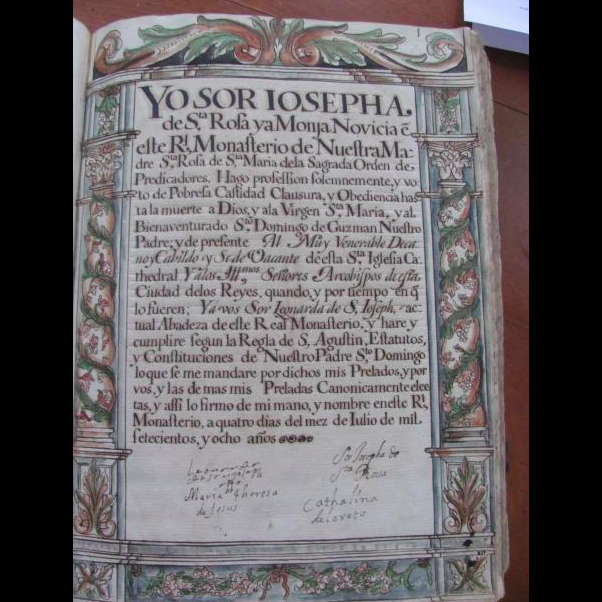 1
YO SOR IOSEPHA,
de S.ta Rosa ya Monja Novicia ẽ
este R.l Monasterio de Nuestra Ma
dre S.ta Rosa de S.ta Maria dela Sagrada Orden de,
Predicadores. Hago profession solemnemente, y vo
to de Pobresa Castidad Clausura, y Obediencia has
ta la muerte a Dios, y ala Virgen S.ta Maria, y al
Bienaventurado S.to Domingo de Guzman Nuestro
Padre, y de presente Al Muy Venerable Deca
no y Cabildo y Sede Vacante de esta S.ta Iglesia Ca
thedral Y alos Ill.mos Señores Arcobispos de esta
Ciudad delos Reyes, quando, y por tiempo en q̃
lo fueren; Ya vos Sor Leonarda de S. Ioseph, ac
tual Abadeza de este Real Monasterio, y hare, y
cumplire segun la Regla de S. Agustin, Estatutos,
y Constituciones de Nuestro Padre S.to Domingo
lo que se me mandare por dichos mis Prelados, y por
vos, y las de mas mis Preladas Canonicamente elec
tas, y assi lo firmo de mi mano, y nombre en este R.l
Monasterio, a quatro dias del mez de Iulio de mil
setecientos, y ocho años
Sor Josepha de
Sta Rosa
Maria theresa
de Jesus
Cathalina
de loreto